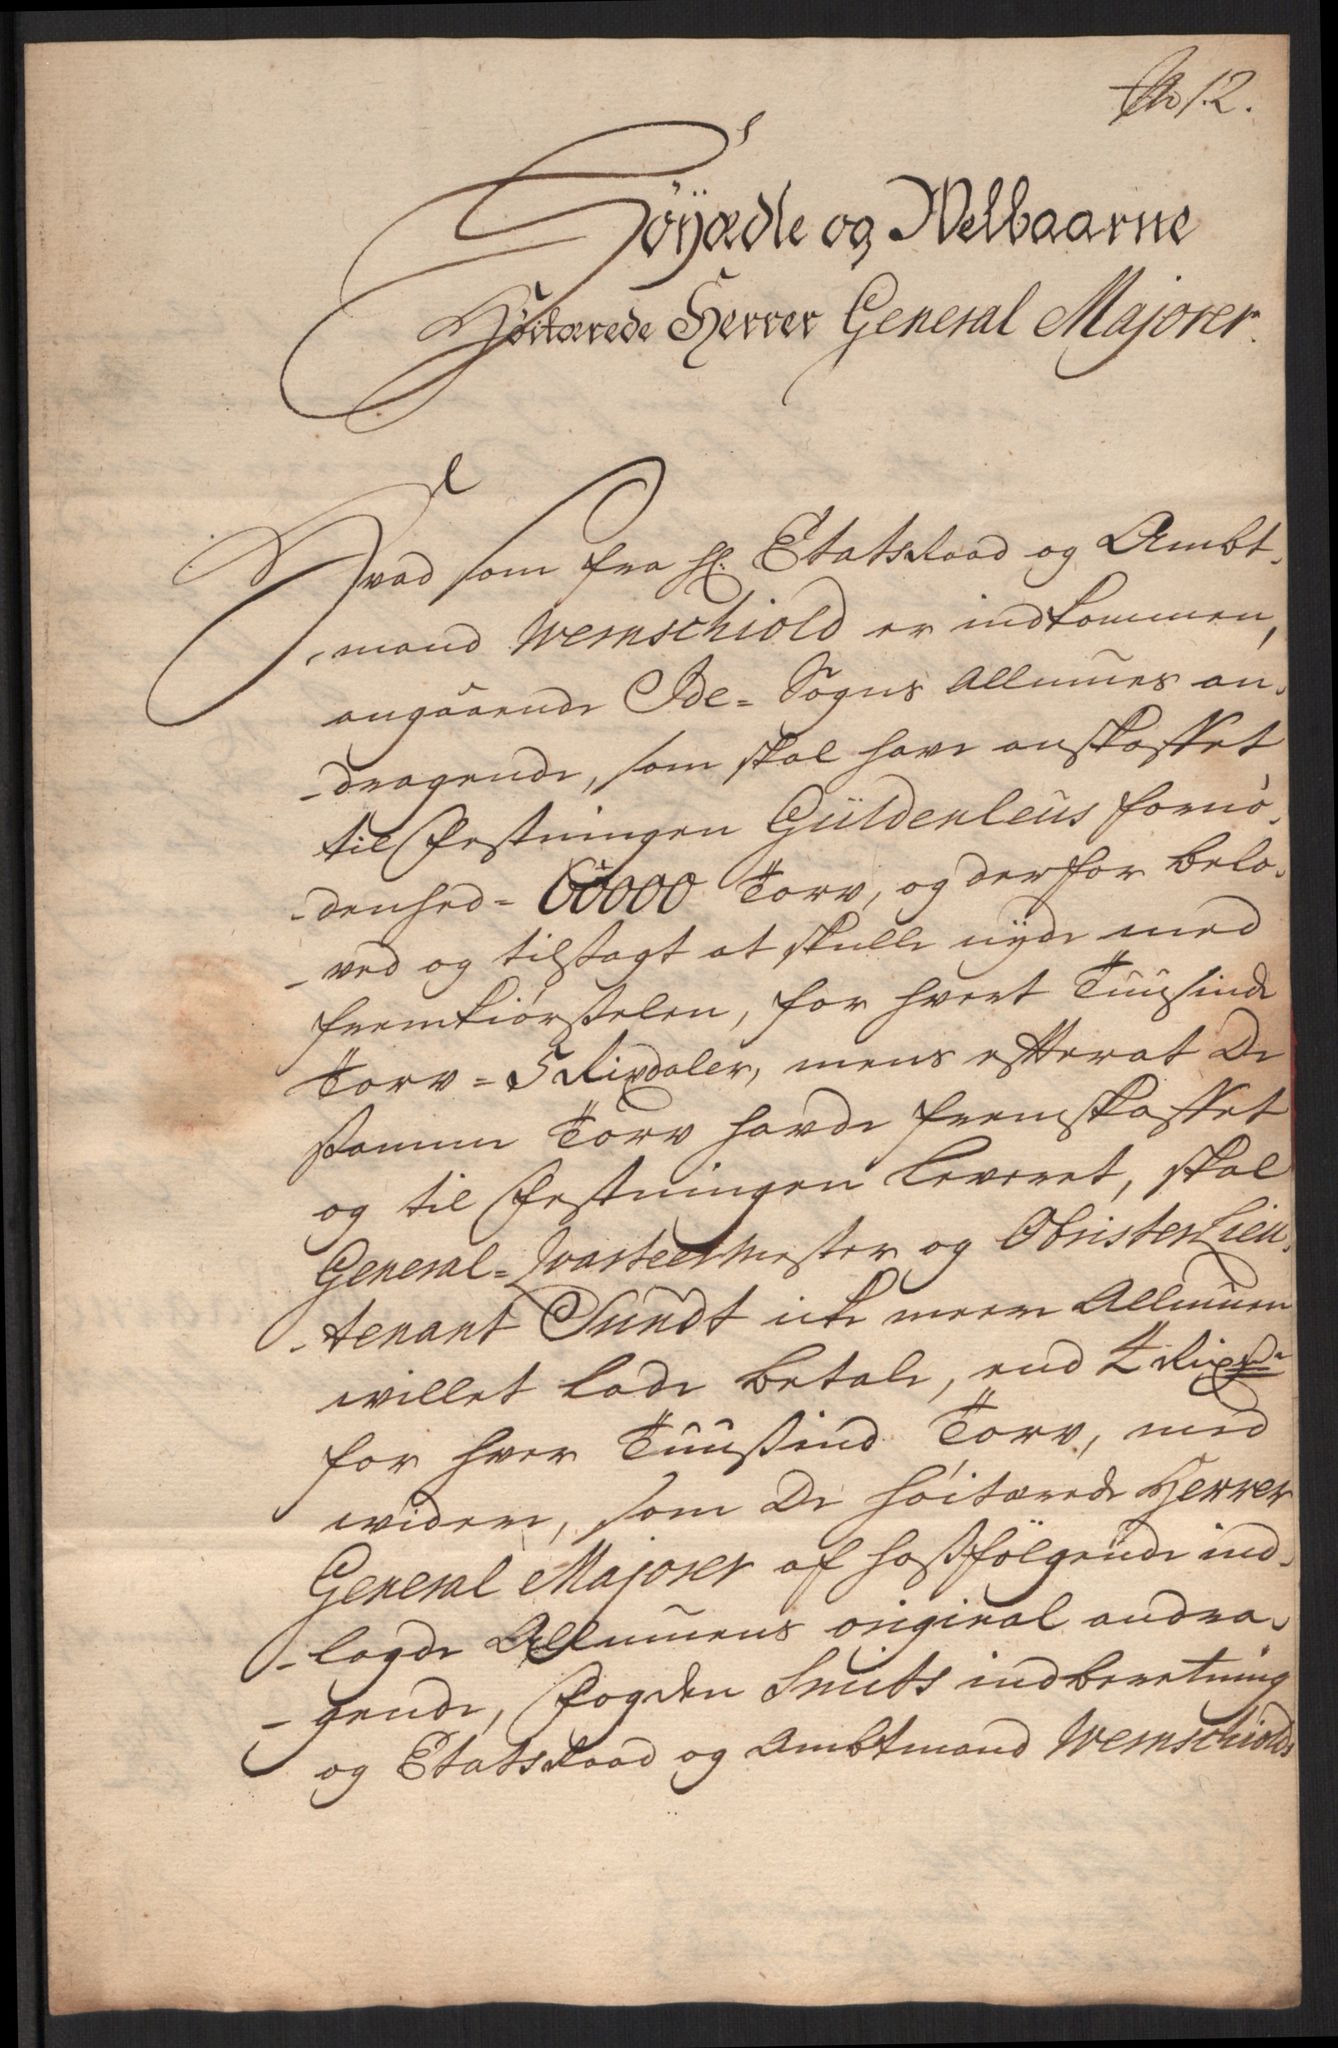 No 12.
Høÿædle og Welbaarne
Høitærede Herrer General Majorer.
Hvad som fra Hr. Etatsraad og Ambt-
mand Wernschiold er indkommen,
angaaende Ide= Sogns Allmues an-
-dragende, som skal have anskaffet
til Festningen Güldenleus fornø-
-denhed= 60000 Torv, og derfor belo-
-ved og tilsagt at skulle nÿde med
fremkiørselen, for hvert Tuusinde
Torv= 5 Rixdaler, mens efterat De
samme Torv havde fremskaffet
og til Festningen leveret, skal
General=Qvarteermester og Obrister Lieu-
-tenant Sundt icke meere Allmuen
willet lade betale, end 4 Rixdr
for hver Tuusind Torv, med
widere, som De høitærede Herrer
General Majorer af hosfølgende ind-
-lagde Allmuens original andra-
-gende, Fogden Smits indberetning
og Etatsraad og Ambtmand Wernschiolds